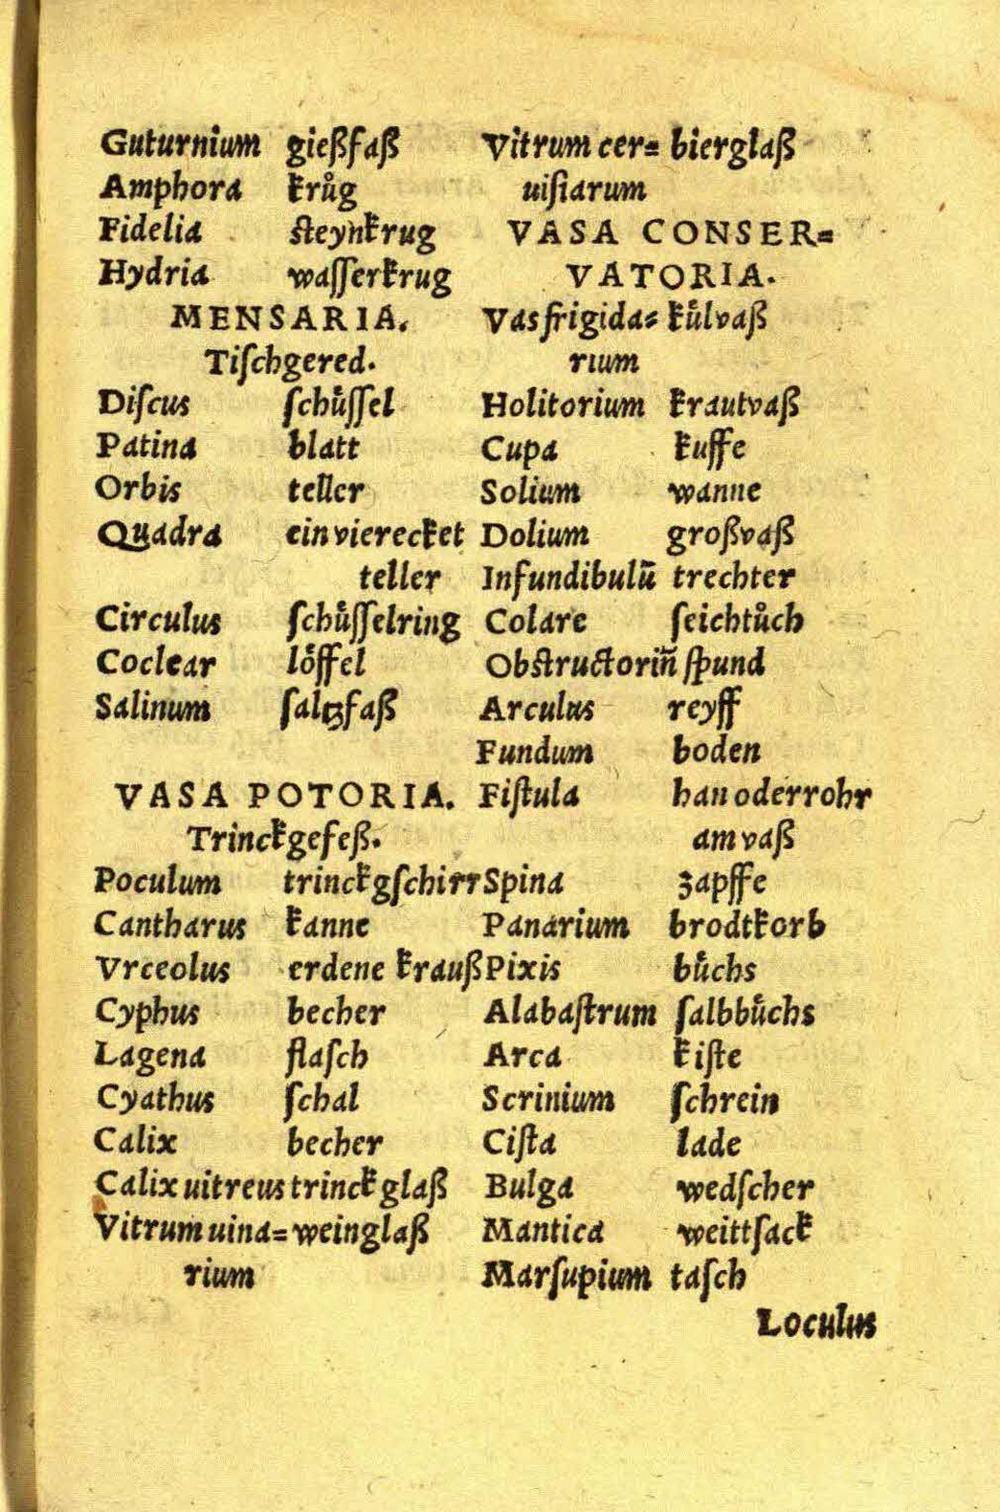 Guturnium gießfaß
Amphora krůg
Fidelia steynkrug
Hydria wasserkrug
MENSARIA.
Tischgered.
Discus schůssel
Patina blatt
Orbis teller
Quadra ein vierecket
teller
Circulus schůsselring
Coclear lôffel
Salinum saltzfaß
VASA POTORIA.
Trinckgefeß.
Poculum trinckgschirr
Cantharus kanne
Vrceolus erdene krauß
Cyphus becher
Lagena flasch
Cyathus schal
Calix becher
Calix uitreus trinckglaß
Vitrum uina= weinglaß
rium
Vitrum cer= bierglaß
uisiarum
VASA CONSER=
VATORIA.
Vas frigida= kůlvaß
rium
Holitorium krautvaß
Cupa kuffe
Solium wanne
Dolium großvaß
Infundibulū trechter
Colare seichtůch
Obstructoriū spund
Arculus reyff
Fundum boden
Fistula han oder rohr
am vaß
Spina zapffe
Panarium brodtkorb
Pixis bůchs
Alabastrum salbbůchs
Arca kiste
Scrinium schrein
Cista lade
Bulga wedscher
Mantica weittsack
Marsupium tasch
Loculus